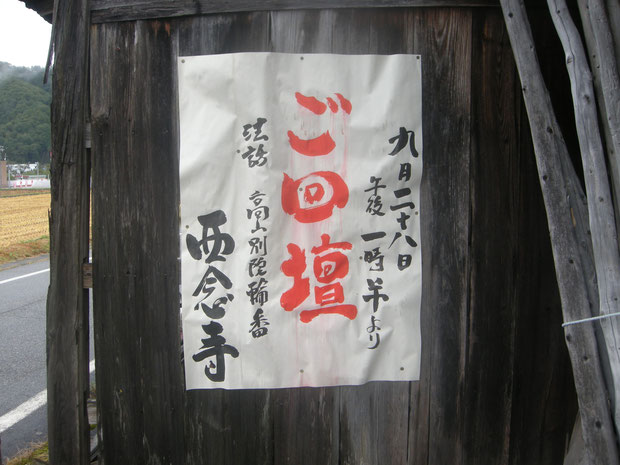 九月二十八日
午後一時半より
ご回壇
法話 高山別院輪番
西念寺